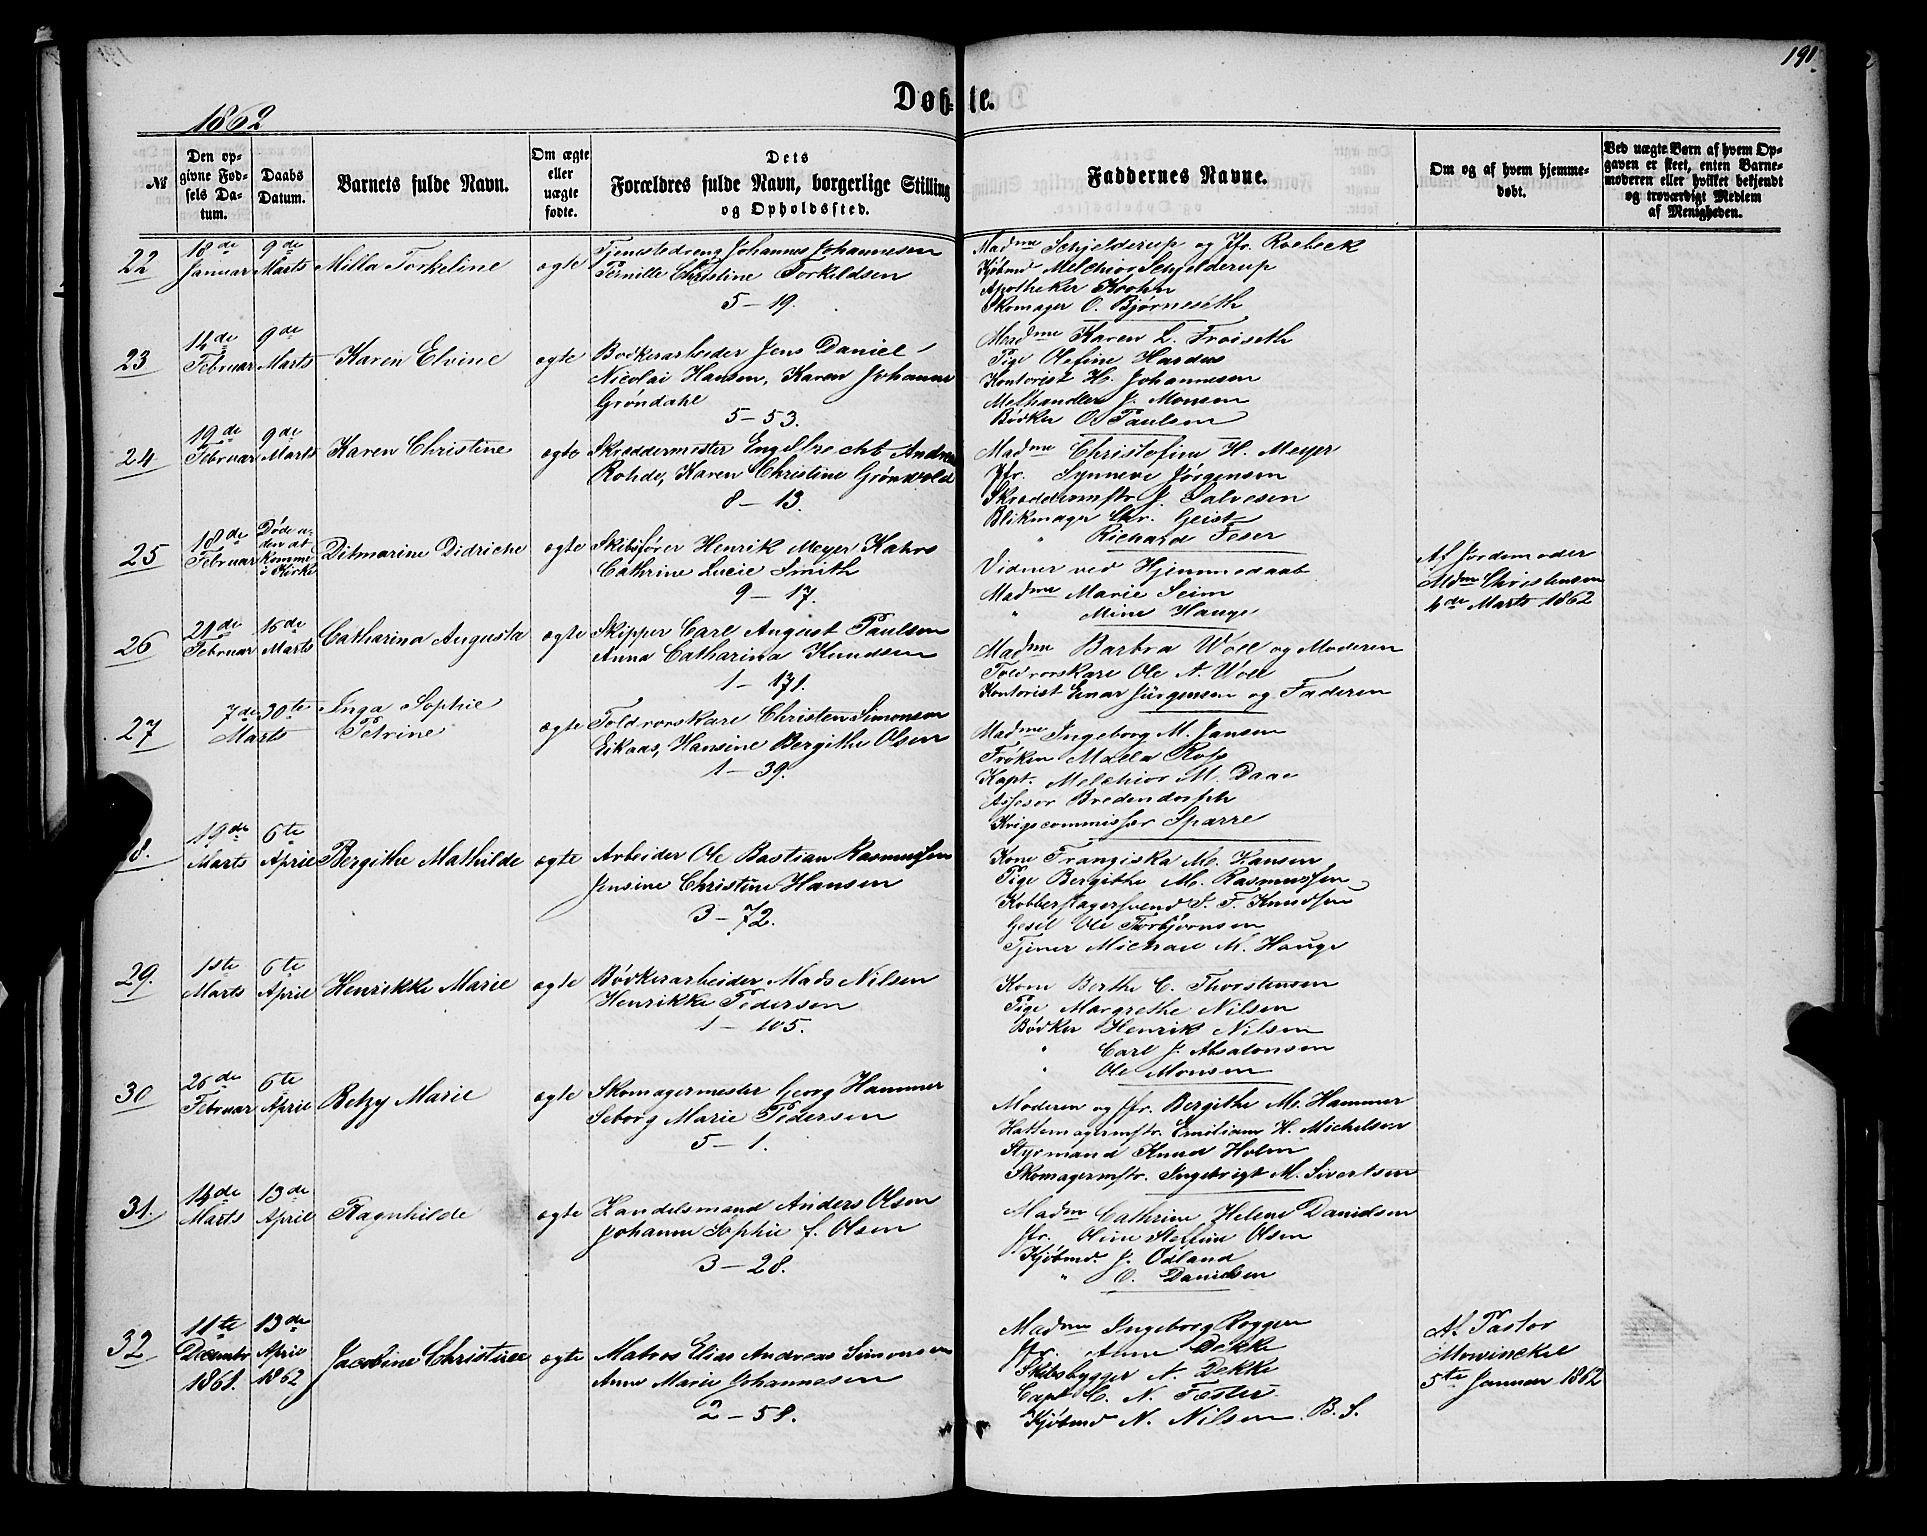 191.
Døbte.
1862
No.
Den op-
givne Fød-
sels Da-
tum.
Daabs
Datum.
Barnets fulde Navn.
Om ægte
eller
uægte
fødte.
Dets
Forældres fulde Navn, borgerlige Stilling
og Opholdssted.
Faddernes Navne.
Om og af hvem hjemme-
døbt.
Ved uægte Børn af hvem Op-
gaven er skeet, enten Barne-
moderen eller hvilket bekjendt
og troværdigt Medlem
af Menigheden.
22
18de
Januar
9de
Marts
Milla Torkeline
ægte
Tjenestedreng Johannes Johannesen
Pernille Christine Torkildsen
5 - 19.
Madme Schjelderup og Jfr. Roebeck
Kjøbmd Melchior Schjelderup
Apotheker Krohn
Skomager O. Bjørneseth
23
14de
Februar
9de
Marts
Karen Elvine
ægte
Bødkerarbeider Jens Daniel
Nicolai Hansen, Karen Johanne
Grøndahl
5 - 53.
Madme Karen L. Froiseth
Pige Olefine Hardus
Kontorist H. Johannesen
Melhandler J. Monsen
Bødker O. Paulsen
24
19de
Februar
9de
Marts
Karen Christine
ægte
Skreddermester Engelbrecht Andreas
Rohde, Karen Christine Grønvold
8 - 13.
Madme Christofine H. Meyer
Jfr. Synneve Jørgensen
Skreddermstr J. Salvesen
Blikmager Chr. Geist
" Richard Feser
25
18de
Februar
Døde u-
den at
komme
i Kirke
Ditmarine Didriche
ægte
Skibsfører Henrik Meyer Kahrs
Cathrine Lucie Smith
9 - 17.
Vidner ved Hjemmedaab
Madme Marie Seim
" Mine Hauge
Af Jordemoder
Mdm Christensen
4de Marts 1862
26
21de
Februar
16de
Marts
Catharina Augusta
ægte
Skipper Carl August Paulsen
Anna Catharina Knudsen
1 - 171.
Madme Barbra Woll og Moderen
Toldrorskarl Ole A. Woll
Kontorist Einar Jürgensen og Faderen
27
7de
Marts
30te
Inga Sophie
Petrine
ægte
Toldrorskarl Christen Simonsen
Eikaas, Hansine Bergithe Olsen
1 - 39.
Madme Ingeborg M. Jansen
Frøken Malla Rofs
Kapt. Melchior M. Daae
Assesor Bredendorph
Krigscommissær Sparre
8.
19de
Marts
6te
April
Bergithe Mathilde
ægte
Arbeider Ole Bastian Rasmussen
Jensine Christine Hansen
3 - 72.
Kone Frangiska M. Hansen
Pige Bergithe M. Rasmussen
Kobberslagersvend S. F. Knudsen
Gesel Ole Thorbjørnsen
Tjener Michael M. Hauge
29.
1ste
Marts
6te
April
Henrikke Marie
ægte
Bødkerarbeider Mads Nilsen
Henrikke Pedersen
1 - 105.
Kone Berthe C. Thorstensen
Pige Margrethe Nilsen
Bødker Henrik Nilsen
" Carl J. Absalonsen
Ole Monsen
30
26de
Februar
6te
April
Betzy Marie
ægte
Skomagermester Georg Hammer
Seborg Marie Pedersen
5 - 1.
Moderen og Jfr. Bergithe M. Hammer
Hattemagermstr. Emilius H. Michelsen
Styrmand Knud Holm
Skomagermstr. Ingebrigt M. Sivertsen
31.
14de
Marts
13de
April
Ragnhilde
ægte
Handelsmand Anders Olsen
Johanne Sophie f. Olsen
3 - 28.
Madm Cathrine Helene Danielsen
Jfr. Oline Steffine Olsen
Kjøbmd. J. Ødland
" O. Danielsen
32
11te
Decembr
1861.
13de
April
1862
Jacobine Christine
ægte
Matros Elias Andreas Simonsen
Anne Marie Johannesen
2 - 58.
Madme Ingeborg Roggen
Jfr. Anne Dekke
Skibsbygger A. Dekke
Capt C. N. Fæster
Kjøbmd N. Nilsen B. S.
Af Pastor
Mowinckel
5te Januar 1862